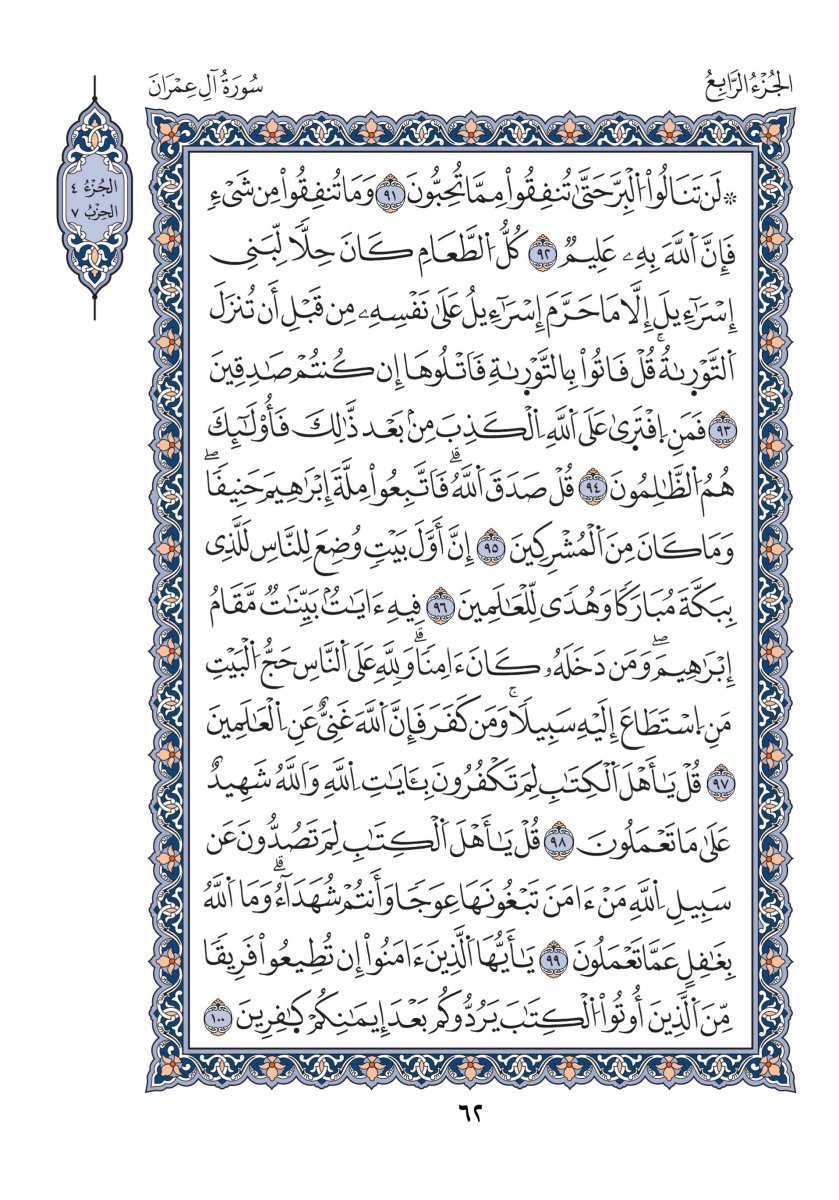 الجُزْءُ الرَّابِعُ
سُورَةُ آلِ عِمْرَانَ
الجُزْءُ ٤
الحِزْبُ ٧
* لَن تَنَالُوا۟ اُ۬لْبِرَّ حَتَّىٰ تُنفِقُوا۟ مِمَّا تُحِبُّونَ ٩١ وَمَا تُنفِقُوا۟ مِن شَىْءٍ
فَإِنَّ اَ۬للَّهَ بِهِۦ عَلِيمٌ ٩٢ كُلُّ اُ۬لطَّعَامِ كَانَ حِلًّا لِّبَنِى
إِسْرَٰٓءِيلَ إِلَّا مَا حَرَّمَ إِسْرَٰٓءِيلُ عَلَىٰ نَفْسِهِۦ مِن قَبْلِ أَن تُنزَلَ
اَ۬لتَّوْرَىٰةُۚ قُلْ فَاتُوا۟ بِالتَّوْرَىٰةِ فَاتْلُوهَا إِن كُنتُمْ صَٰدِقِينَ
٩٣ فَمَنِ اِ۪فْتَرَىٰ عَلَى اَ۬للَّهِ اِ۬لْكَذِبَ مِنۢ بَعْد ذَّٰلِكَ فَأُو۟لَٰٓئِكَ
هُمُ اُ۬لظَّٰلِمُونَ ٩٤ قُلْ صَدَقَ اَ۬للَّهُۗ فَاتَّبِعُوا۟ مِلَّةَ إِبْرَٰهِيمَ حَنِيفًاۖ
وَمَا كَانَ مِنَ اَ۬لْمُشْرِكِينَ ٩٥ إِنَّ أَوَّلَ بَيْتٍ وُضِعَ لِلنَّاسِ لَلَّذِى
بِبَكَّةَ مُبَارَكًا وَهُدًى لِّلْعَٰلَمِينَ ٩٦ فِيهِ ءَايَٰتٌۢ بَيِّنَٰتٌ مَّقَامُ
إِبْرَٰهِيمَۖ وَمَن دَخَلَهُۥ كَانَ ءَامِنًاۗ وَلِلَّهِ عَلَى اَ۬لنَّاسِ حَجُّ اُ۬لْبَيْتِ
مَنِ اِ۪سْتَطَاعَ إِلَيْهِ سَبِيلًاۚ وَمَن كَفَرَ فَإِنَّ اَ۬للَّهَ غَنِىٌّ عَنِ اِ۬لْعَٰلَمِينَ
٩٧ قُلْ يَٰٓأَهْلَ اَ۬لْكِتَٰبِ لِمَ تَكْفُرُونَ بِـَٔايَٰتِ اِ۬للَّهِ وَاَ۬للَّهُ شَهِيدٌ
عَلَىٰ مَا تَعْمَلُونَ ٩٨ قُلْ يَٰٓأَهْلَ اَ۬لْكِتَٰبِ لِمَ تَصُدُّونَ عَن
سَبِيلِ اِ۬للَّهِ مَنْ ءَامَنَ تَبْغُونَهَا عِوَجًا وَأَنتُمْ شُهَدَآءُۗ وَمَا اَ۬للَّهُ
بِغَٰفِلٍ عَمَّا تَعْمَلُونَ ٩٩ يَٰٓأَيُّهَا اَ۬لَّذِينَ ءَامَنُوٓا۟ إِن تُطِيعُوا۟ فَرِيقًا
مِّنَ اَ۬لَّذِينَ أُوتُوا۟ اُ۬لْكِتَٰبَ يَرُدُّوكُم بَعْدَ إِيمَٰنِكُمْ كَٰفِرِينَ ١٠٠
٦٢